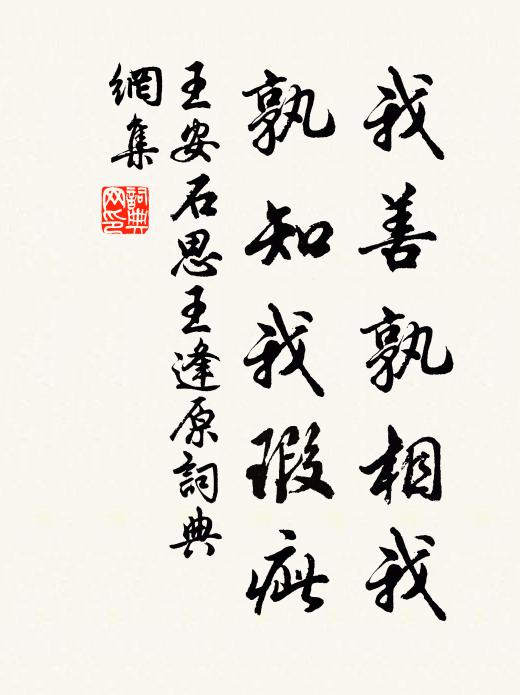 我善孰相我
孰知我瑕疵
王安石思王逢原詞典
網集
詞典
网印